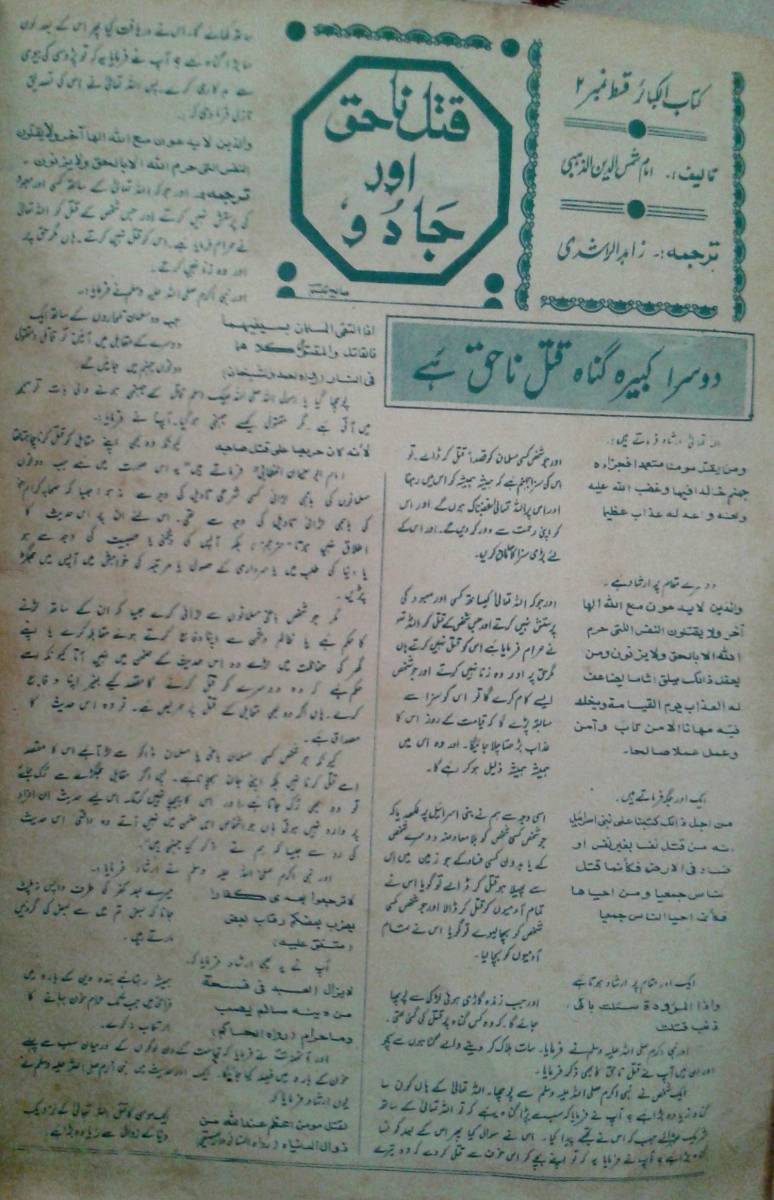 کتاب الکبائر قسط نمبر ۲
تالیف:۔ امام شمس الدین الذہبی
ترجمہ:۔ زاہد الراشدی
قتل ناحق
اور
جادو
دوسرا کبیرہ گناہ قتل ناحق ہے
اللہ تعالیٰ ارشاد فرماتے ہیں:
ومن یقتل مومنا متعمدا فجزاءہ
جہنم خالدا فیہا وغضب اللہ علیہ
ولعنہ واعد لہ عذاب عظیما
اور جو شخص کسی مسلمان کو قصداً قتل کر ڈالے، تو
اس کی سزا جہنم ہے کہ ہمیشہ ہمیشہ کو اس میں رہنا
اور اس پر اللہ تعالیٰ غضبناک ہوں گے اور اس
کو اپنی رحمت سے دور کر دیں گے۔ اور اس کے
لئے بڑی سزا کا سامان کر دیا۔
دوسرے مقام پر ارشاد ہے۔
والذین لا یدعون مع اللہ الہا
آخر ولا یقتلون النفس اللتی حرم
اللہ الا بالحق ولا یزنون ومن
یفعل ذالک یلق اثاما یضاعف
لہ العذاب یوم القیامۃ ویخلد
فیہ مہانا الا من تاب وآمن
وعمل عملا صالحا۔
اور جو کہ اللہ تعالیٰ کیساتھ کسی اور معبود کی
پرستش نہیں کرتے اور جس شخص کے قتل کو اللہ تعالیٰ
نے حرام فرمایا ہے اس کو قتل نہیں کرتے ہاں
مگر حق پر اور وہ زنا نہیں کرتے اور جو شخص
ایسے کام کرے گا تو اس کو سزا سے
سابقہ پڑے گا کہ قیامت کے روز اس کا
عذاب بڑھتا چلا جائیگا۔ اور وہ اس میں
ہمیشہ ہمیشہ ذلیل ہو کر رہے گا۔
ایک اور جگہ فرماتے ہیں۔
من اجل ذالک کتبنا علی بنی اسرائیل
انہ من قتل نفسا بغیر نفس او
فساد فی الارض فکأنما قتل
الناس جمیعا ومن احیاھا
فکأنما احیا الناس جمیعا
اسی وجہ سے ہم نے بنی اسرائیل پر لکھدیا کہ
جو شخص کسی شخص کو بلا معاوضہ دوسرے شخص
کے یا بدون کسی فساد کے جو زمین میں اس
سے پھیلا ہو قتل کر ڈالے تو گویا اس نے
تمام آدمیوں کو قتل کر ڈالا اور جو شخص کسی
شخص کو بچا لیوے تو گویا اس نے تمام
آدمیوں کو بچا لیا۔
ایک اور مقام پر ارشاد ہوتا ہے
واذا الموؤدۃ سئلت بای
ذنب قتلت
اور جب زندہ گاڑی ہوئی لڑکی سے پوچھا
جائے گا کہ وہ کس گناہ پر قتل کی گئی تھی۔
اور نبی اکرم صلی اللہ علیہ وسلم نے فرمایا۔ سات ہلاک کر دینے والے گناہوں سے بچو
اور ان میں آپ نے قتل ناحق کا بھی ذکر فرمایا۔
ایک شخص نے نبی اکرم صلی اللہ علیہ وسلم سے پوچھا۔ اللہ تعالیٰ کے ہاں کون سا
گناہ زیادہ بڑا ہے آپ نے فرمایا کہ سب سے بڑا گناہ یہ ہے کہ تو اللہ تعالیٰ کے ساتھ
شریک ٹھہرائے جب کہ اس نے تجھے پیدا کیا۔ اس نے سوال کیا پھر اس کے بعد کونسا
گناہ بڑا ہے آپ نے فرمایا یہ کہ تو اپنے بچے کو اس خوف سے قتل کر دے کہ وہ تیرے
ساتھ کھائے گا۔ اس نے دریافت کیا پھر اس کے بعد کون
سا بڑا گناہ ہے آپ نے فرمایا یہ کہ تو پڑوسی کی بیوی
سے بدکاری کرے۔ پس اللہ تعالیٰ نے اس کی تصدیق
نازل فرما دی کہ:۔
والذین لا یدعون مع اللہ الہا آخر ولا یقتلون
النفس التی حرم اللہ الا بالحق ولا یزنون۔
ترجمہ:۔ اور جو کہ اللہ تعالیٰ کے ساتھ کسی اور معبود
کی پرستش نہیں کرتے اور جس شخص کے قتل کو اللہ تعالیٰ
نے حرام فرمایا ہے۔ اس کو قتل نہیں کرتے۔ ہاں مگر حق پر
اور وہ زنا نہیں کرتے۔
اور نبی اکرم صلی اللہ علیہ وسلم نے فرمایا:۔
اذا التقی المسلمان بسیفیہما
فالقاتل والمقتول کلا ھما
فی النار (رواہ احمد وشیخان)
جب دو مسلمان تلواروں کے ساتھ ایک
دوسرے کے مقابل میں آئیں تو قاتل و مقتول
دونوں جہنم میں جائیں گے۔
پوچھا گیا یا رسول اللہ صلی اللہ علیک وسلم قاتل کے جہنمی ہونے والی بات تو سمجھ
میں آتی ہے مگر مقتول کیسے جہنمی ہو گیا۔ آپ نے فرمایا:۔
لأنہ کان حریصا علی قتل صاحبہ
کیونکہ وہ بھی اپنے مقابل کو قتل کرنا چاہتا تھا
امام ابو سلیمان الخطابی فرماتے ہیں "یہ اس صورت میں ہے جب دونوں
مسلمانوں کی باہمی لڑائی کسی شرعی تاویل کی وجہ سے نہ ہو جیسا کہ صحابہ کرام
کی باہمی لڑائی تاویل کی وجہ سے تھی۔ اس لئے ان پر اس حدیث کا
اطلاق نہیں ہوتا" مترجم) بلکہ آپس کی دشمنی یا عصبیت کی وجہ سے ہو
یا دنیا کی طلب میں یا سرداری کے حصول یا مرتبہ کی خواہش میں آپس میں جھگڑ
پڑیں۔
مگر جو شخص باغی مسلمانوں سے لڑائی کرے جیسا کہ ان کے ساتھ لڑنے
کا حکم ہے یا ظالم دشمن سے اپنا دفاع کرتے ہوئے مقابلہ کرے یا اپنے
گھر کی حفاظت میں لڑے وہ اس حدیث کے ضمن میں نہیں آتا کیونکہ اسے
حکم ہے کہ وہ دوسرے کو قتل کرنے کا مقصد کئے بغیر اپنا دفاع
کرے۔ ہاں اگر وہ بھی مقابل کے قتل پر حریص ہے۔ تو وہ اس حدیث کا
مصداق ہے۔
کیونکہ جو شخص کسی مسلمان باغی یا مسلمان ڈاکو سے لڑتا ہے اس کا مقصد
اسے قتل کرنا نہیں بلکہ اپنی جان بچانا ہے۔ پس اگر مقابل جھگڑے سے رک جائے
تو وہ بھی رک جاتا ہے اور اس کا پیچھا نہیں کرتا۔ اس لیے حدیث ان افراد
پر وارد نہیں ہوتی ہاں جو اشخاص اس ضمن میں نہیں آتے وہ واقعی اس حدیث
کی رو سے جیسا کہ ہم نے ذکر کیا جہنمی ہیں"۔
اور نبی اکرم صلی اللہ علیہ وسلم نے ارشاد فرمایا:۔
لا ترجعوا بعدی کفارا
یضرب بعضکم رقاب بعض
(متفق علیہ)
میرے بعد کفر کی طرف واپس نہ پلٹ
جانا کہ بعض تم میں سے بعض کی گردنیں
مارتے پھریں۔
آپ نے یہ بھی ارشاد فرمایا کہ۔
لا یزال العبد فی فسحۃ
من دینہ مالم یصب
دما حرام (رواہ الحاکم)
ہمیشہ رہتا ہے بندہ دین کے بارہ میں
فراخی میں جب تک حرام خون بہانے کا
ارتکاب نہ کرے۔
اور آنحضرتؐ نے فرمایا کہ قیامت کے دن لوگوں کے درمیان سب سے پہلے
خون کے بارہ میں فیصلہ کیا جائیگا۔ ایک اور حدیث میں نبی اکرم صلی اللہ علیہ وسلم نے
یوں ارشاد فرمایا کہ
لقتل مومن اعظم عند اللہ من
زوال الدنیا (رواہ النسائی والبیہقی)
ایک مومن کا قتل اللہ تعالیٰ کے نزدیک
دنیا کے زوال سے زیادہ بڑا ہے